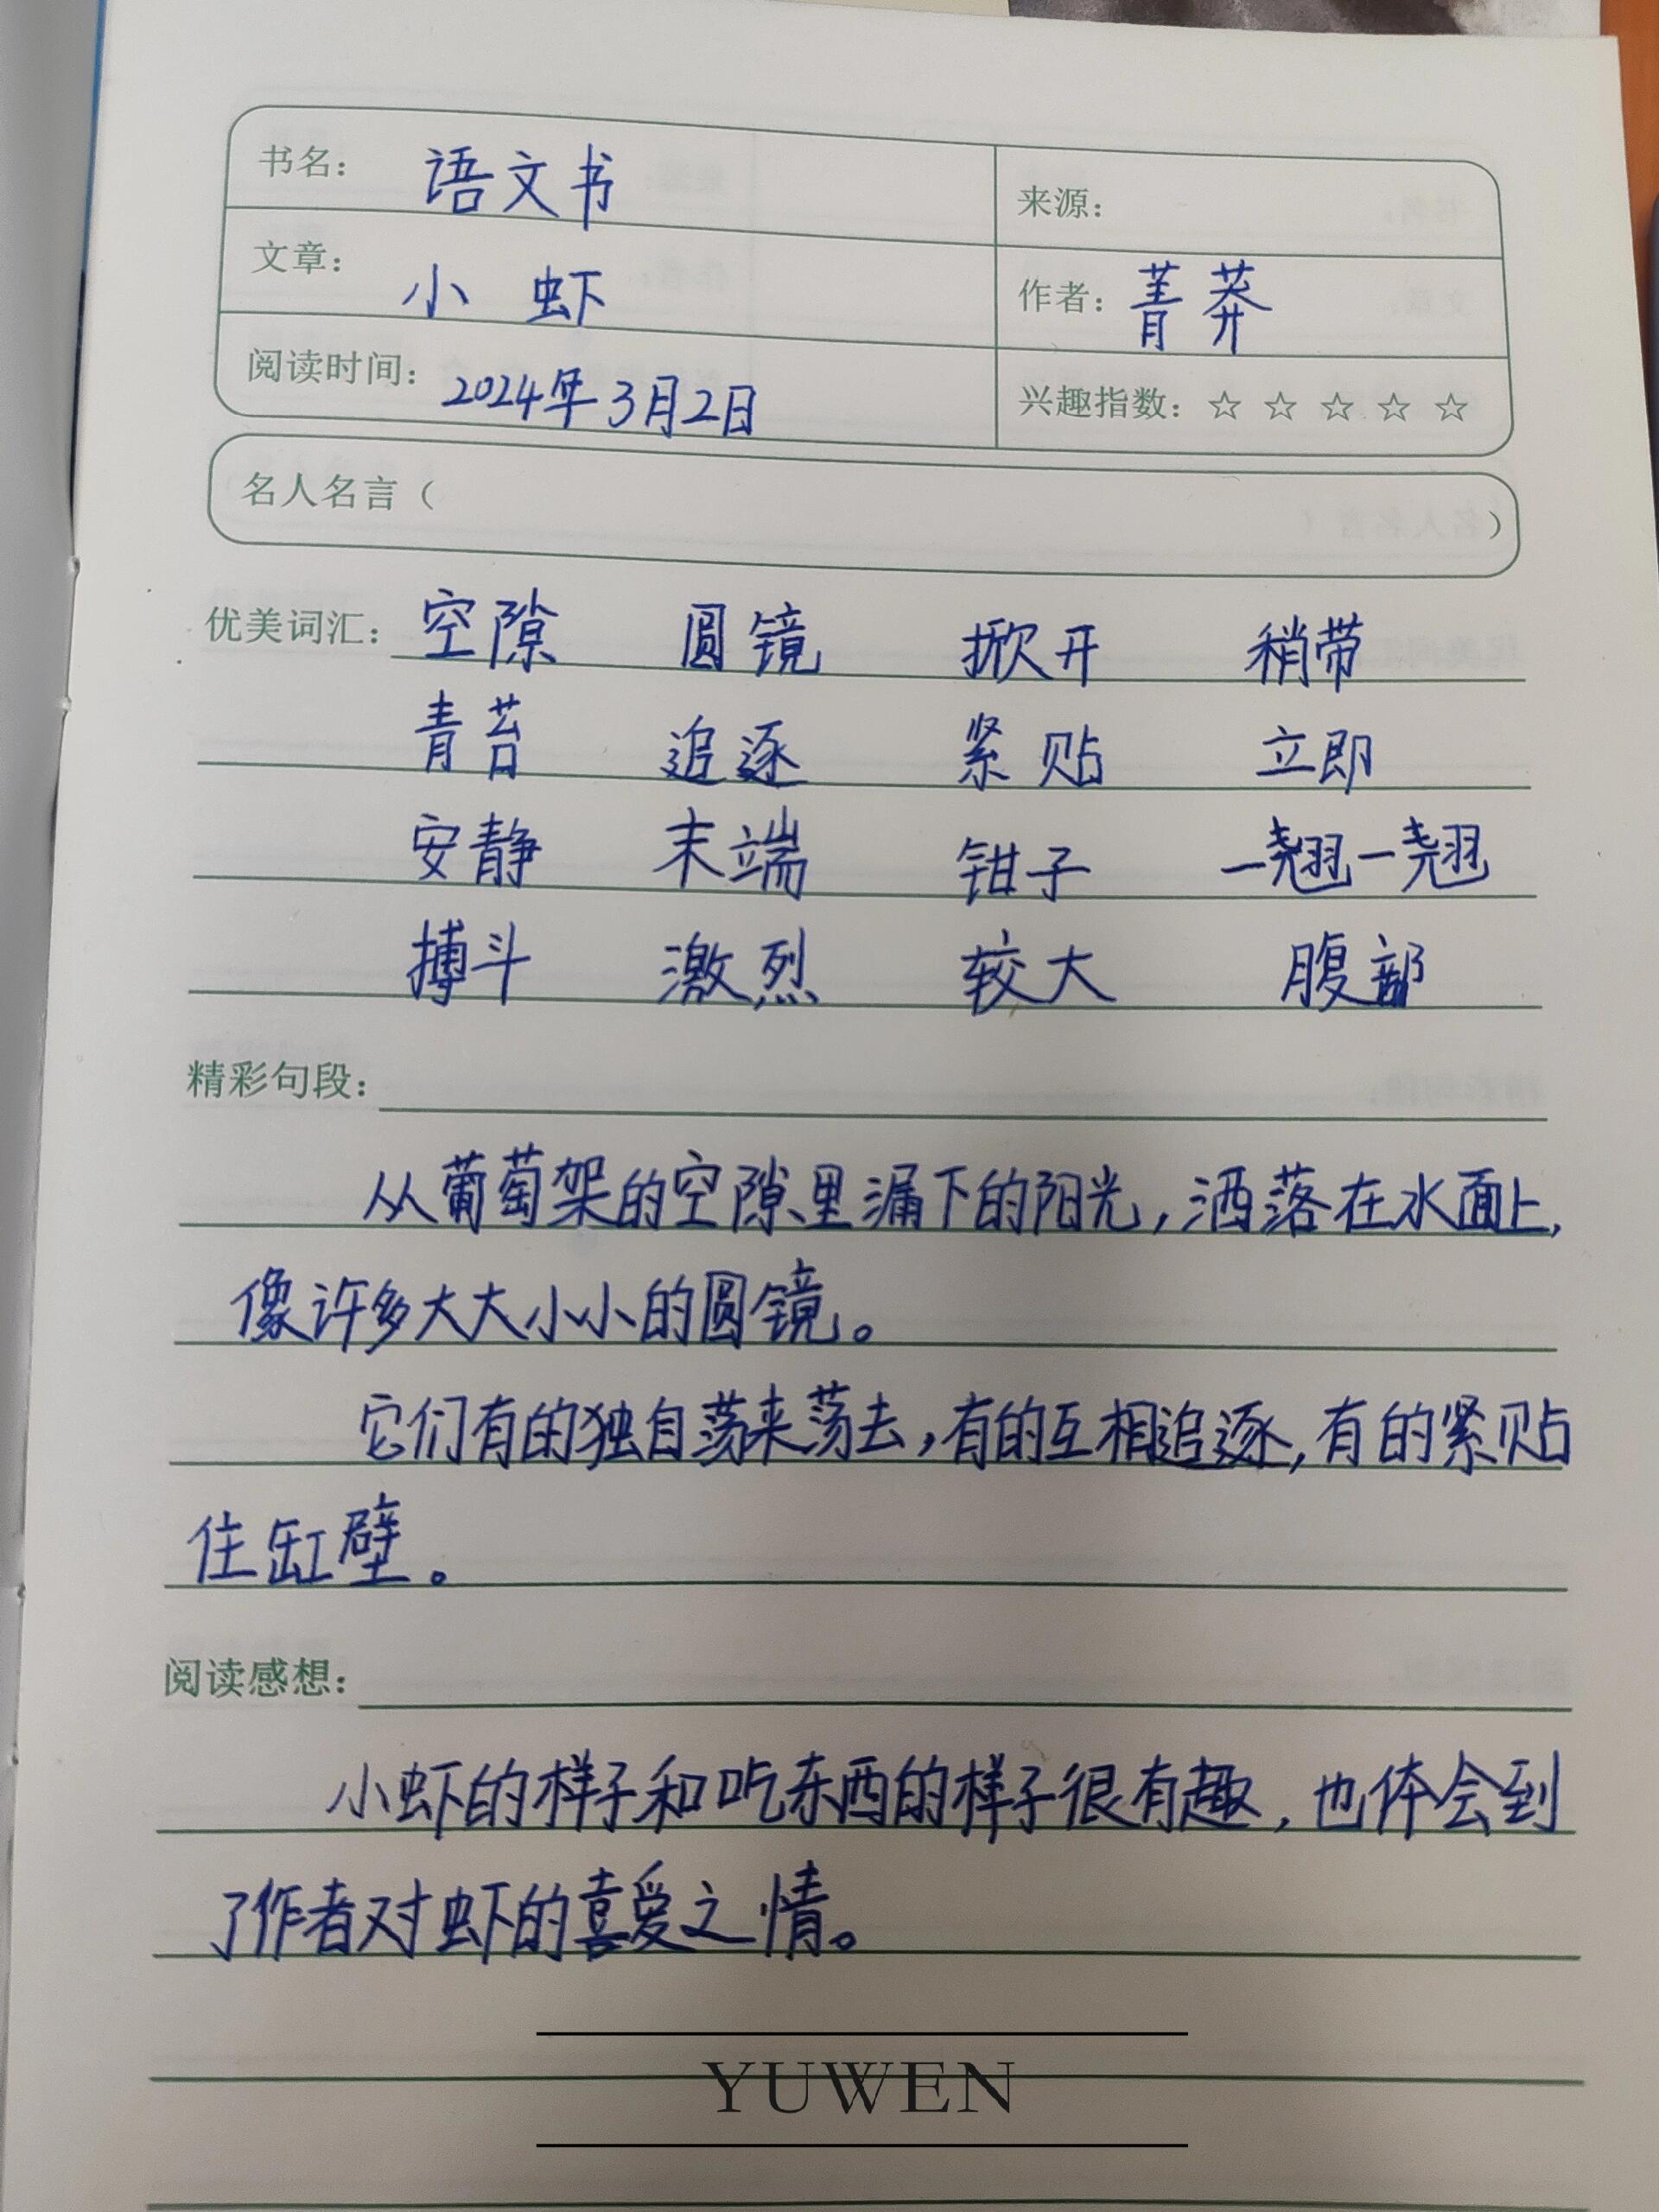 书名： 语文书 来源：
文章： 小虾 作者：菁莽
阅读时间： 2024年3月2日 兴趣指数：☆ ☆ ☆ ☆ ☆
名人名言（ ）
优美词汇： 空隙 圆镜 掀开 稍带
青苔 追逐 紧贴 立即
安静 末端 钳子 一翘一翘
搏斗 激烈 较大 腹部
精彩句段：
从葡萄架的空隙里漏下的阳光，洒落在水面上，
像许多大大小小的圆镜。
它们有的独自荡来荡去，有的互相追逐，有的紧贴
住缸壁。
阅读感想：
小虾的样子和吃东西的样子很有趣，也体会到
了作者对虾的喜爱之情。
YUWEN